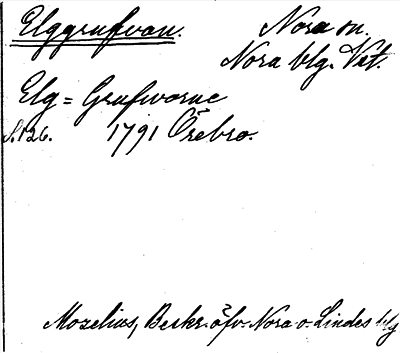 Elggrufvan.
Nora sn.
Nora blg. Vet.
Elg = Grufworne
S.126. 1791 Örebro.
Mozelius, Beskr. öfv. Nora o. Lindes blg